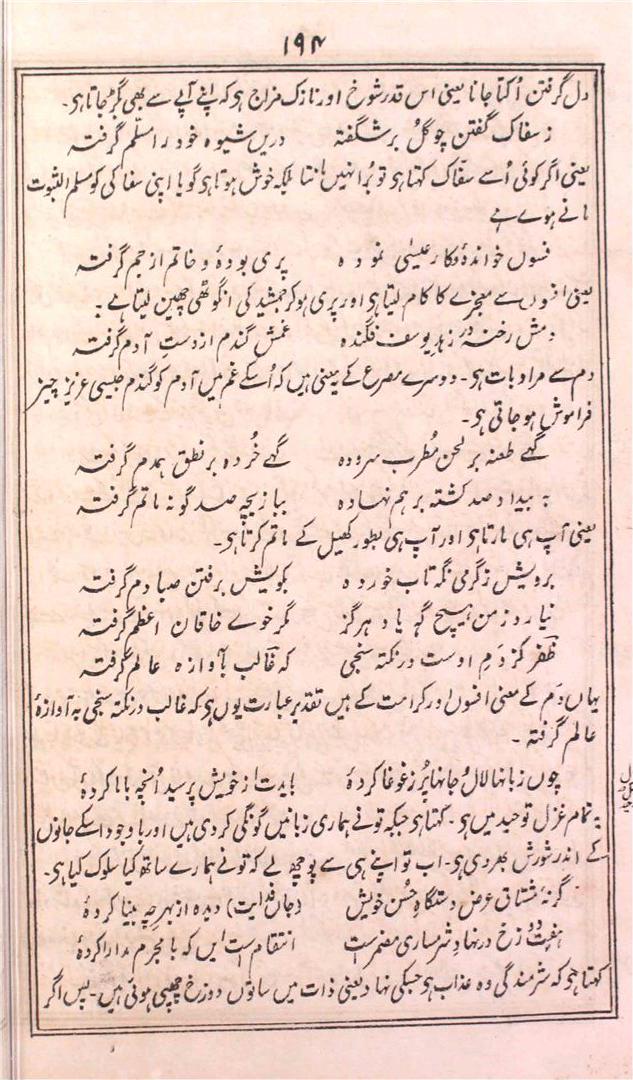 ۱۹۴
دل گرفتن اُکتا جانا یعنی اس قدر شوخ اور نازک مزاج ہو کہ اپنے آپے سے بھی بگڑ جاتا ہو۔
ز سفاک گفتن چو گل بر شگفتہ دریں شیوہ خود را مسلّم گرفتہ
یعنی اگر کوئی اُسے سفّاک کہتا ہو تو بُرا نہیں مانتا بلکہ خوش ہوتا ہو گویا اپنی سفاکی کو مسلم الثبوت
مانے ہوے ہے
فسوں خواندۂ و کار عیسیٰ نمودہ پری بودۂ و خاتم از جم گرفتہ
یعنی افسوں سے معجزے کا کام لیتا ہو اور پری ہو کر جمشید کی انگوٹھی چھین لیتا ہے۔
دمش رخنہ در زہد یوسف فگندہ غمش گندم از دستِ آدم گرفتہ
دم سے مراد بات ہو۔ دوسرے مصرع کے یہ معنی ہیں کہ اُسکے غم میں آدم کو گندم جیسی عزیز چیز
فراموش ہو جاتی ہو۔
گہے طعنہ بر لحن مُطرب سرودہ گہے خُردہ بر نطق ہمدم گرفتہ
بہ بیداد صد کشتہ بر ہم نہادہ ببازیچہ صد گونہ ماتم گرفتہ
یعنی آپ ہی مارتا ہو اور آپ ہی بطور کھیل کے ماتم کرتا ہو۔
برویش ز گرمی نگہ تاب خوردہ بکویش برفتن صبا دم گرفتہ
نیارد ز من ہیچ گہ یاد ہرگز مگر خوے خاقان اعظم گرفتہ
ظفر کز دَمِ اوست در نکتہ سنجی کہ غالب بآوازہ عالم گرفتہ
یہاں دَم کے معنی افسوں اور کرامت کے ہیں تقدیر عبارت یوں ہو کہ غالب در نکتہ سنجی بہ آوازۂ
عالم گرفتہ۔
چوں زبانہا لال و جانہا پُر ز غوغا کردۂ بایدت از خویش پرسید اُنچہ با ما کردۂ
یہ تمام غزل توحید میں ہو۔ کہتا ہو جبکہ تو نے ہماری زبانیں گونگی کر دی ہیں اور با وجود اسکے جانوں
کے اندر شورش بھر دی ہو۔ اب تو اپنے ہی سے پوچھ لے کہ تو نے ہمارے ساتھ کیا سلوک کیا ہو۔
گر نۂ مشتاق عرض دستگاہِ حسن خویش (جاں فدایت) دیدہ از بہر چہ بینا کردۂ
ہفت دوزخ در نہادِ شرمساری مضمر ست انتقام ست ایں کہ با مجرم مدارا کردۂ
کہتا ہو کہ شرمندگی وہ عذاب ہو جسکی نہاد یعنی ذات میں ساتوں دوزخ چھپی ہوتی ہیں۔ پس اگر